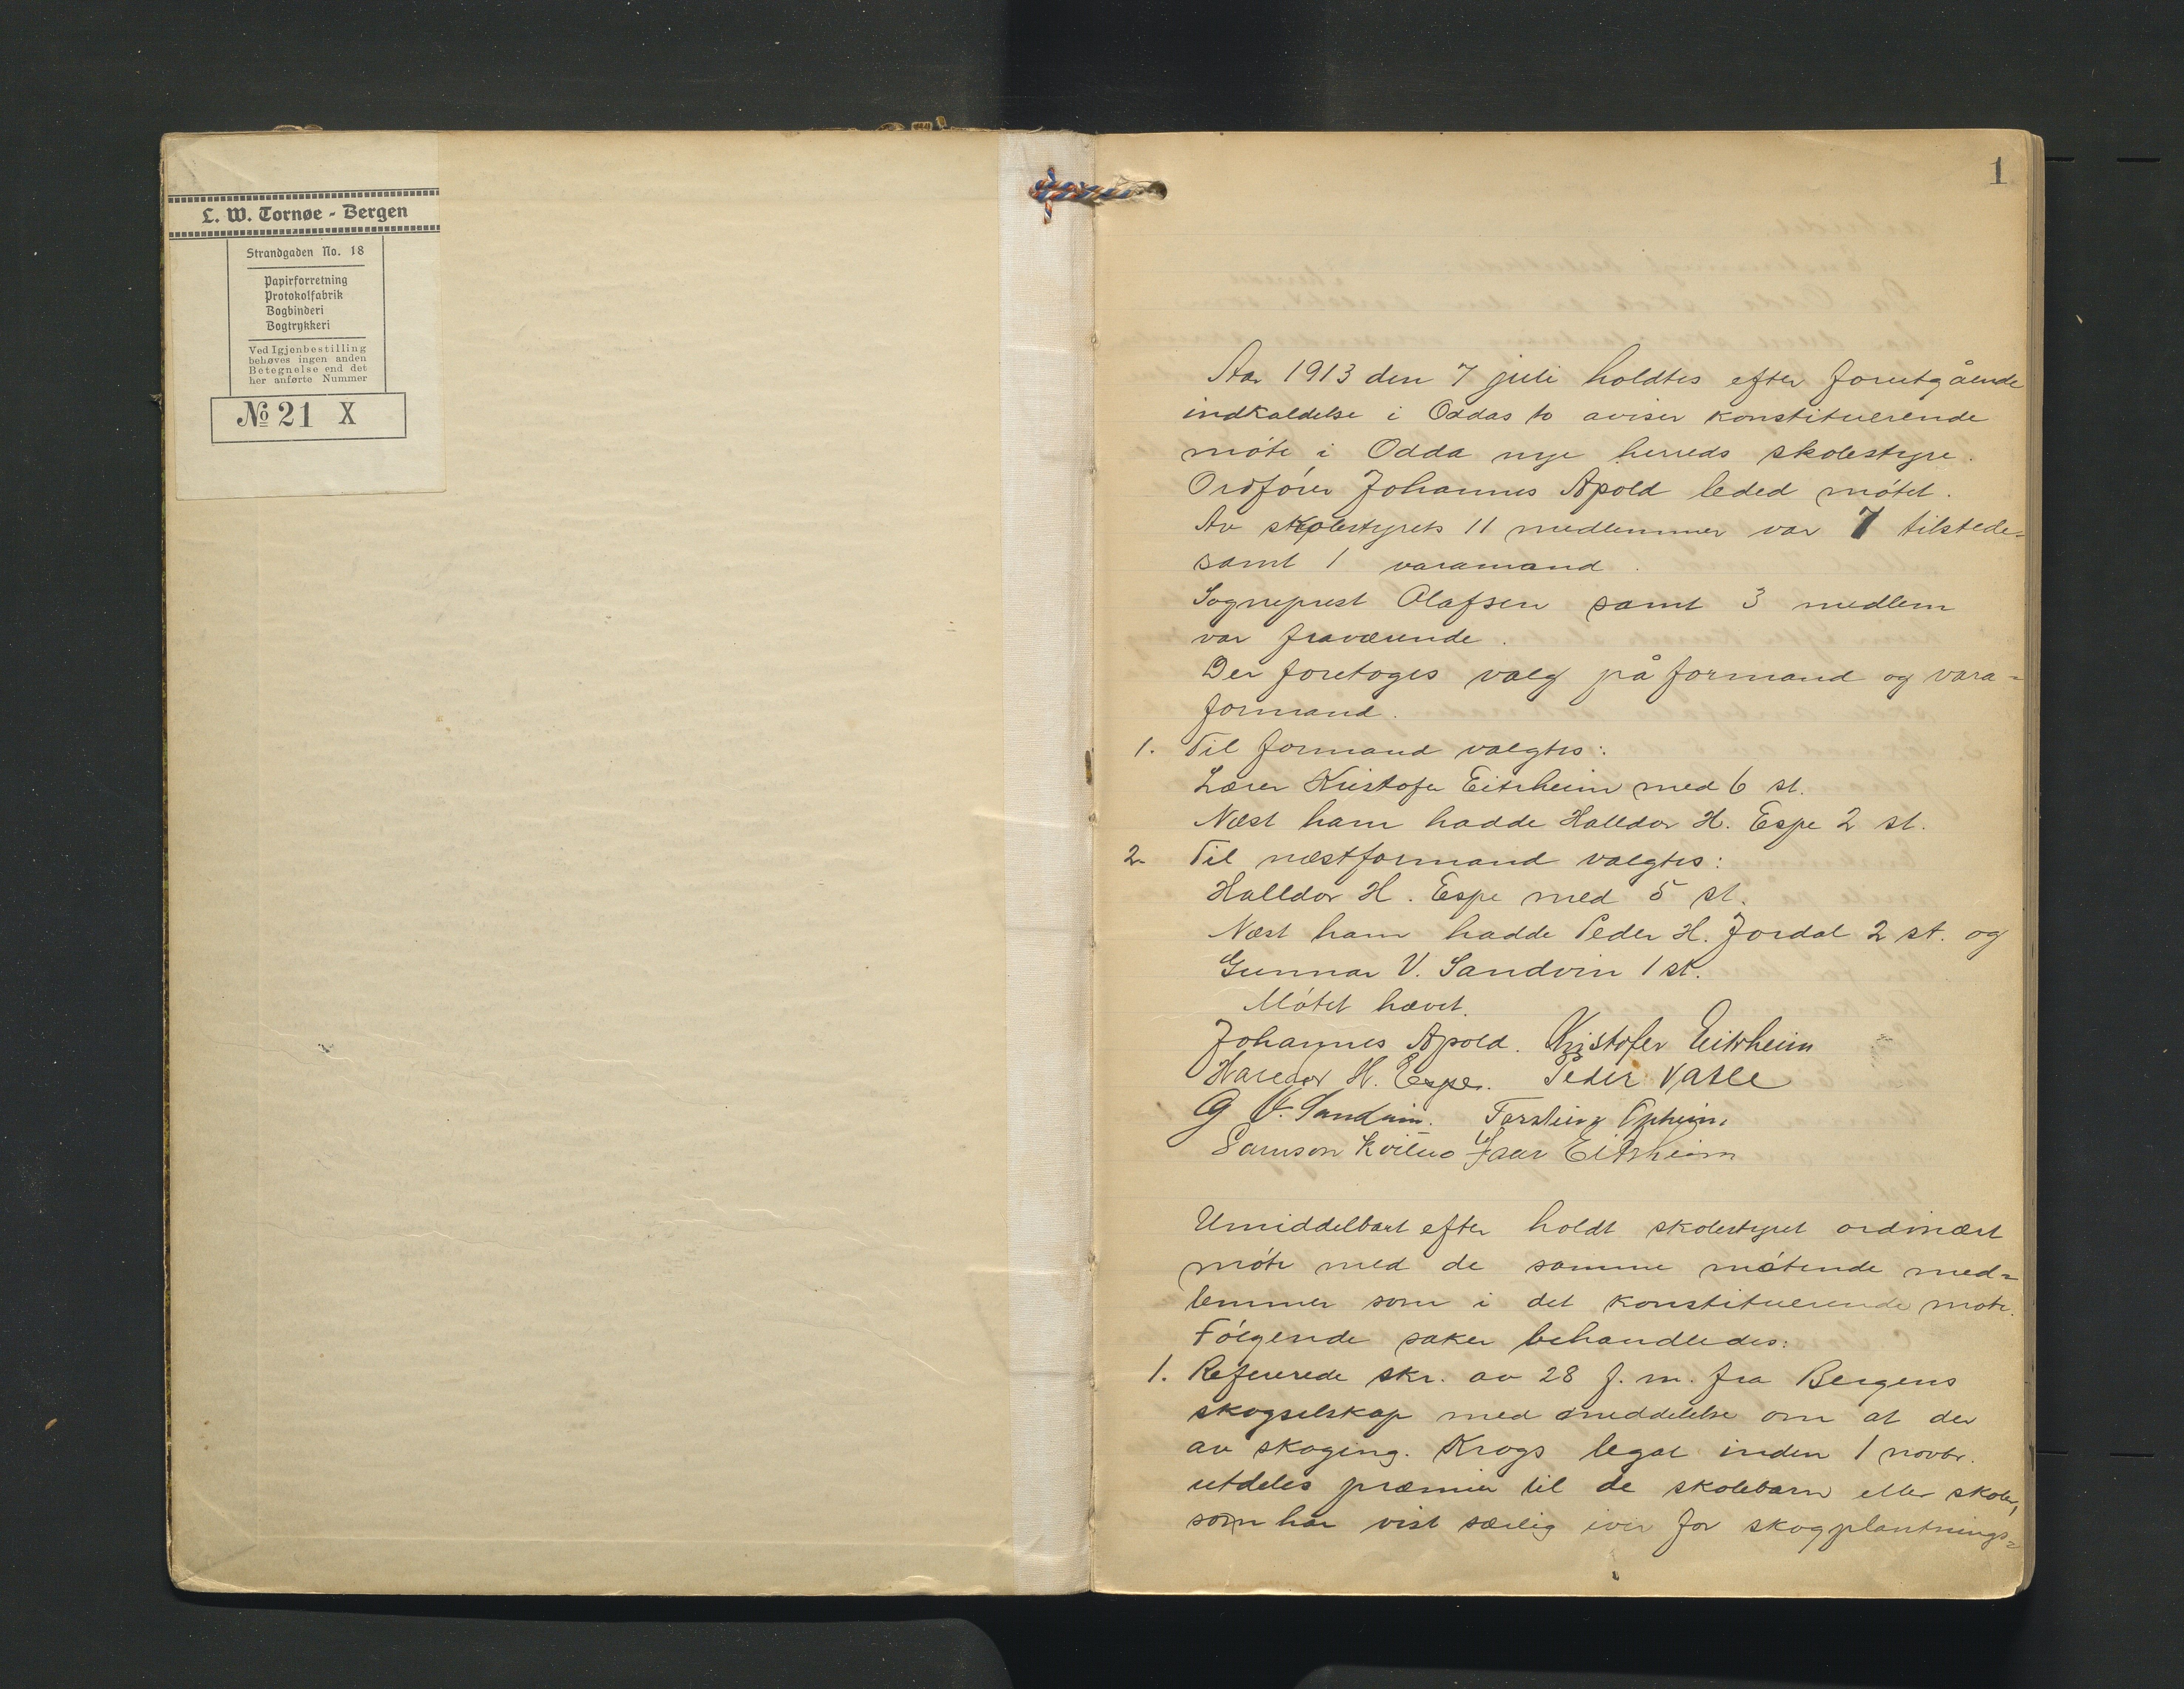 L. W. Tornøe - Bergen
Strandgaden No. 18
Papirforretning
Protokolfabrik
Bogbinderi
Bogtrykkeri
Ved Igjenbestilling
behøves ingen anden
Betegnelse end det
her anførte Nummer
No 21 X
1
Aar 1913 den 7 juli holdtes efter forutgående
indkaldelse i Oddas to aviser konstituerende
møte i Odda nye herreds skolestyre.
Ordfører Johannes Apold leded møtet.
Av skolestyrets 11 medlemmer var 7 tilstede-
samt 1 varamand.
Sogneprest Olafsen samt 3 medlem
var fraværende.
Der foretoges valg på formand og vara-
formand.
1. Til formand valgtes:
Lærer Kristofer Eitrheim med 6 st.
Næst ham hadde Halldor H. Espe 2 st.
2. Til næstformand valgtes:
Halldor H. Espe med 5 st.
Næst ham hadde Peder H. Jordal 2 st. og
Gunnar V. Sandvin 1 st.
Møtet hævet.
Johannes Apold. Kristofer Eitrheim
H. Espe. Peder
G V. Sandvin. Opheim.
Samson Eitrheim
Umiddelbart efter holdt skolestyret ordinært
møte med de samme møtende med=
lemmer som i det konstituerende møte.
Følgende saker behandledes:
1. Refererede skr. av 28 f. m. fra Bergens
skogselskap med meddelelse om at der
av skoging. Krogs legat inden 1 novbr.
utdeles præmier til de skolebarn eller skoler,
som har vist særlig iver for skogplantnings=